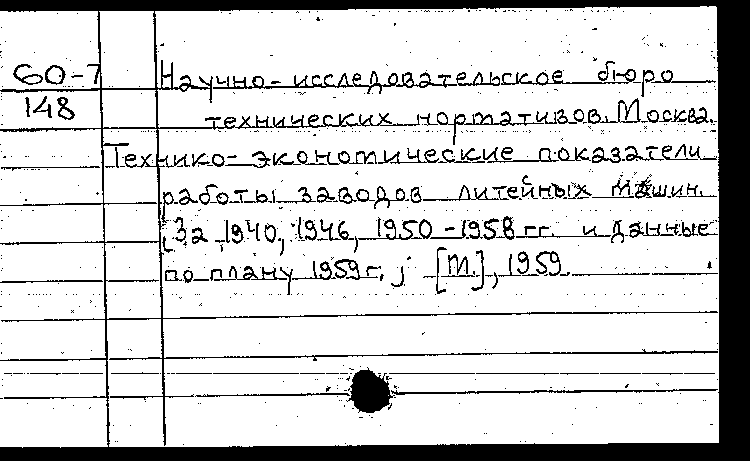 60-7
148
Научно-исследовательское бюро
технических нормативов. Москва.
Технико-экономические показатели
работы заводов литейных машин.
(За 1940, 1946, 1950-1958 гг. и данные
по плану 1959 г.) [М.], 1959.